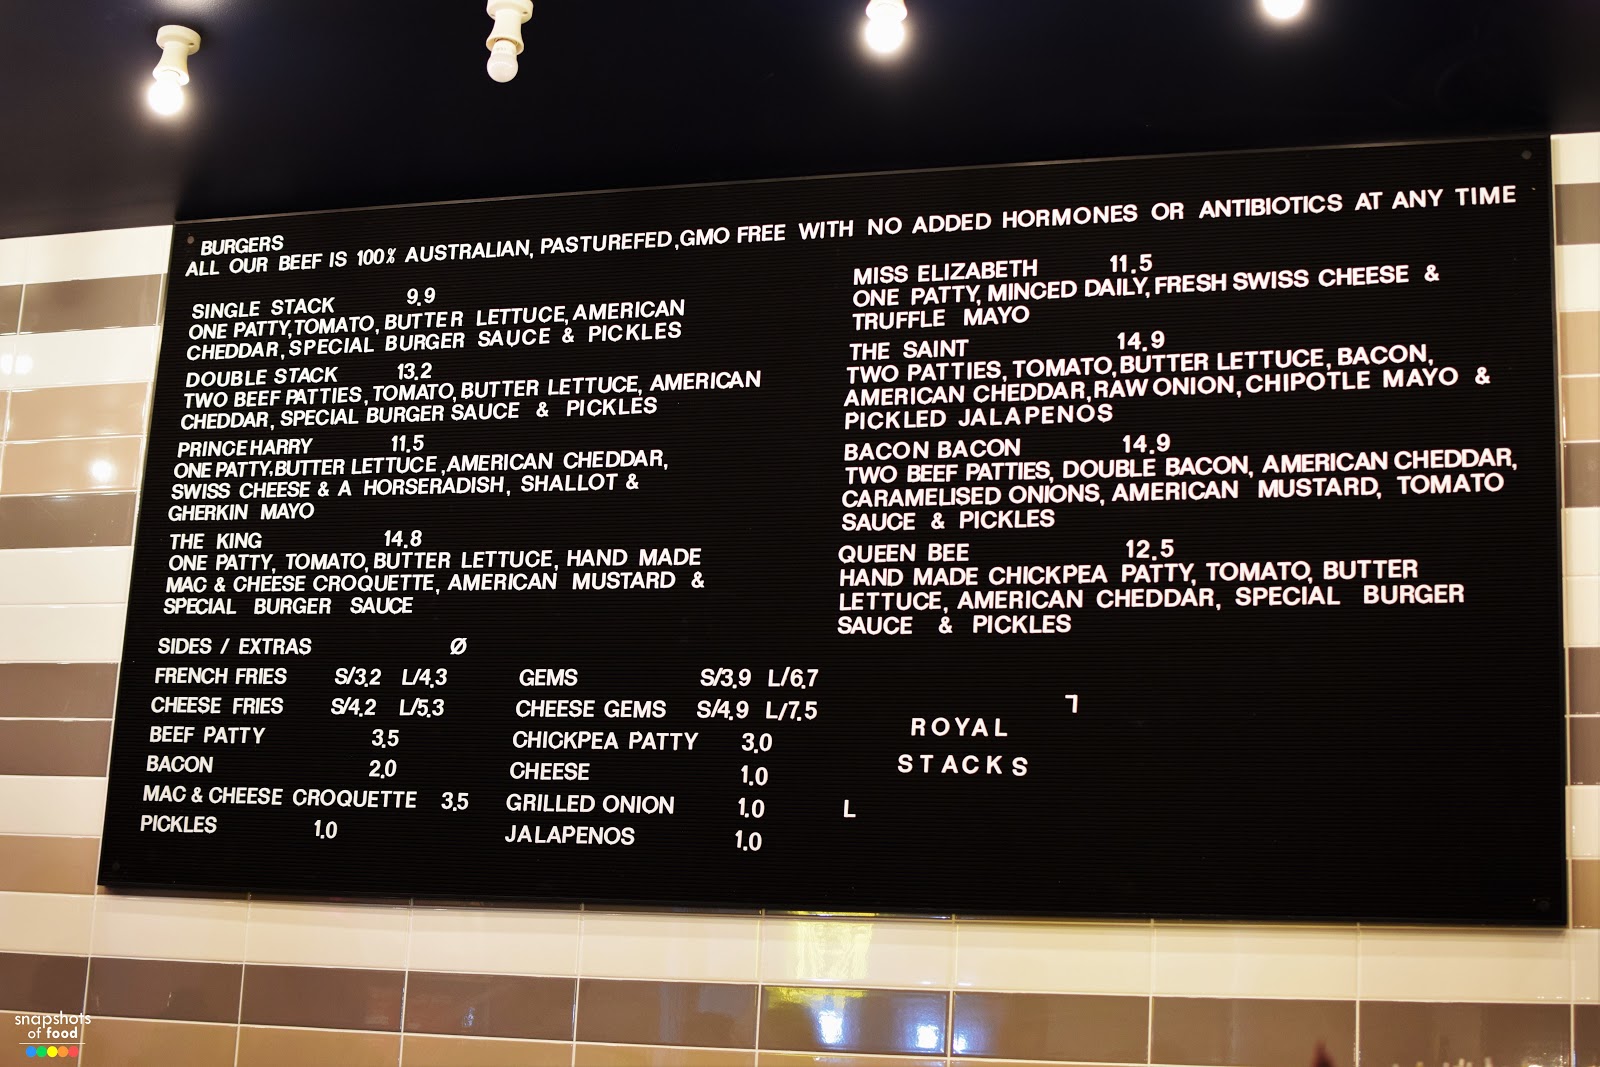 BURGERS
ALL OUR BEEF IS 100% AUSTRALIAN, PASTUREFED, GMO FREE WITH NO ADDED HORMONES OR ANTIBIOTICS AT ANY TIME
SINGLE STACK 9.9
ONE PATTY, TOMATO, BUTTER LETTUCE, AMERICAN
CHEDDAR, SPECIAL BURGER SAUCE & PICKLES
DOUBLE STACK 13.2
TWO BEEF PATTIES, TOMATO, BUTTER LETTUCE, AMERICAN
CHEDDAR, SPECIAL BURGER SAUCE & PICKLES
PRINCE HARRY 11.5
ONE PATTY, BUTTER LETTUCE, AMERICAN CHEDDAR,
SWISS CHEESE & A HORSERADISH, SHALLOT &
GHERKIN MAYO
THE KING 14.8
ONE PATTY, TOMATO, BUTTER LETTUCE, HAND MADE
MAC & CHEESE CROQUETTE, AMERICAN MUSTARD &
SPECIAL BURGER SAUCE
MISS ELIZABETH 11.5
ONE PATTY, MINCED DAILY, FRESH SWISS CHEESE &
TRUFFLE MAYO
THE SAINT 14.9
TWO PATTIES, TOMATO, BUTTER LETTUCE, BACON,
AMERICAN CHEDDAR, RAW ONION, CHIPOTLE MAYO &
PICKLED JALAPENOS
BACON BACON 14.9
TWO BEEF PATTIES, DOUBLE BACON, AMERICAN CHEDDAR,
CARAMELISED ONIONS, AMERICAN MUSTARD, TOMATO
SAUCE & PICKLES
QUEEN BEE 12.5
HAND MADE CHICKPEA PATTY, TOMATO, BUTTER
LETTUCE, AMERICAN CHEDDAR, SPECIAL BURGER
SAUCE & PICKLES
SIDES / EXTRAS Ø
FRENCH FRIES S/3.2 L/4.3
CHEESE FRIES S/4.2 L/5.3
BEEF PATTY 3.5
BACON 2.0
MAC & CHEESE CROQUETTE 3.5
PICKLES 1.0
GEMS S/3.9 L/6.7
CHEESE GEMS S/4.9 L/7.5
CHICKPEA PATTY 3.0
CHEESE 1.0
GRILLED ONION 1.0
JALAPENOS 1.0
ROYAL
STACKS
L
snapshots
of food